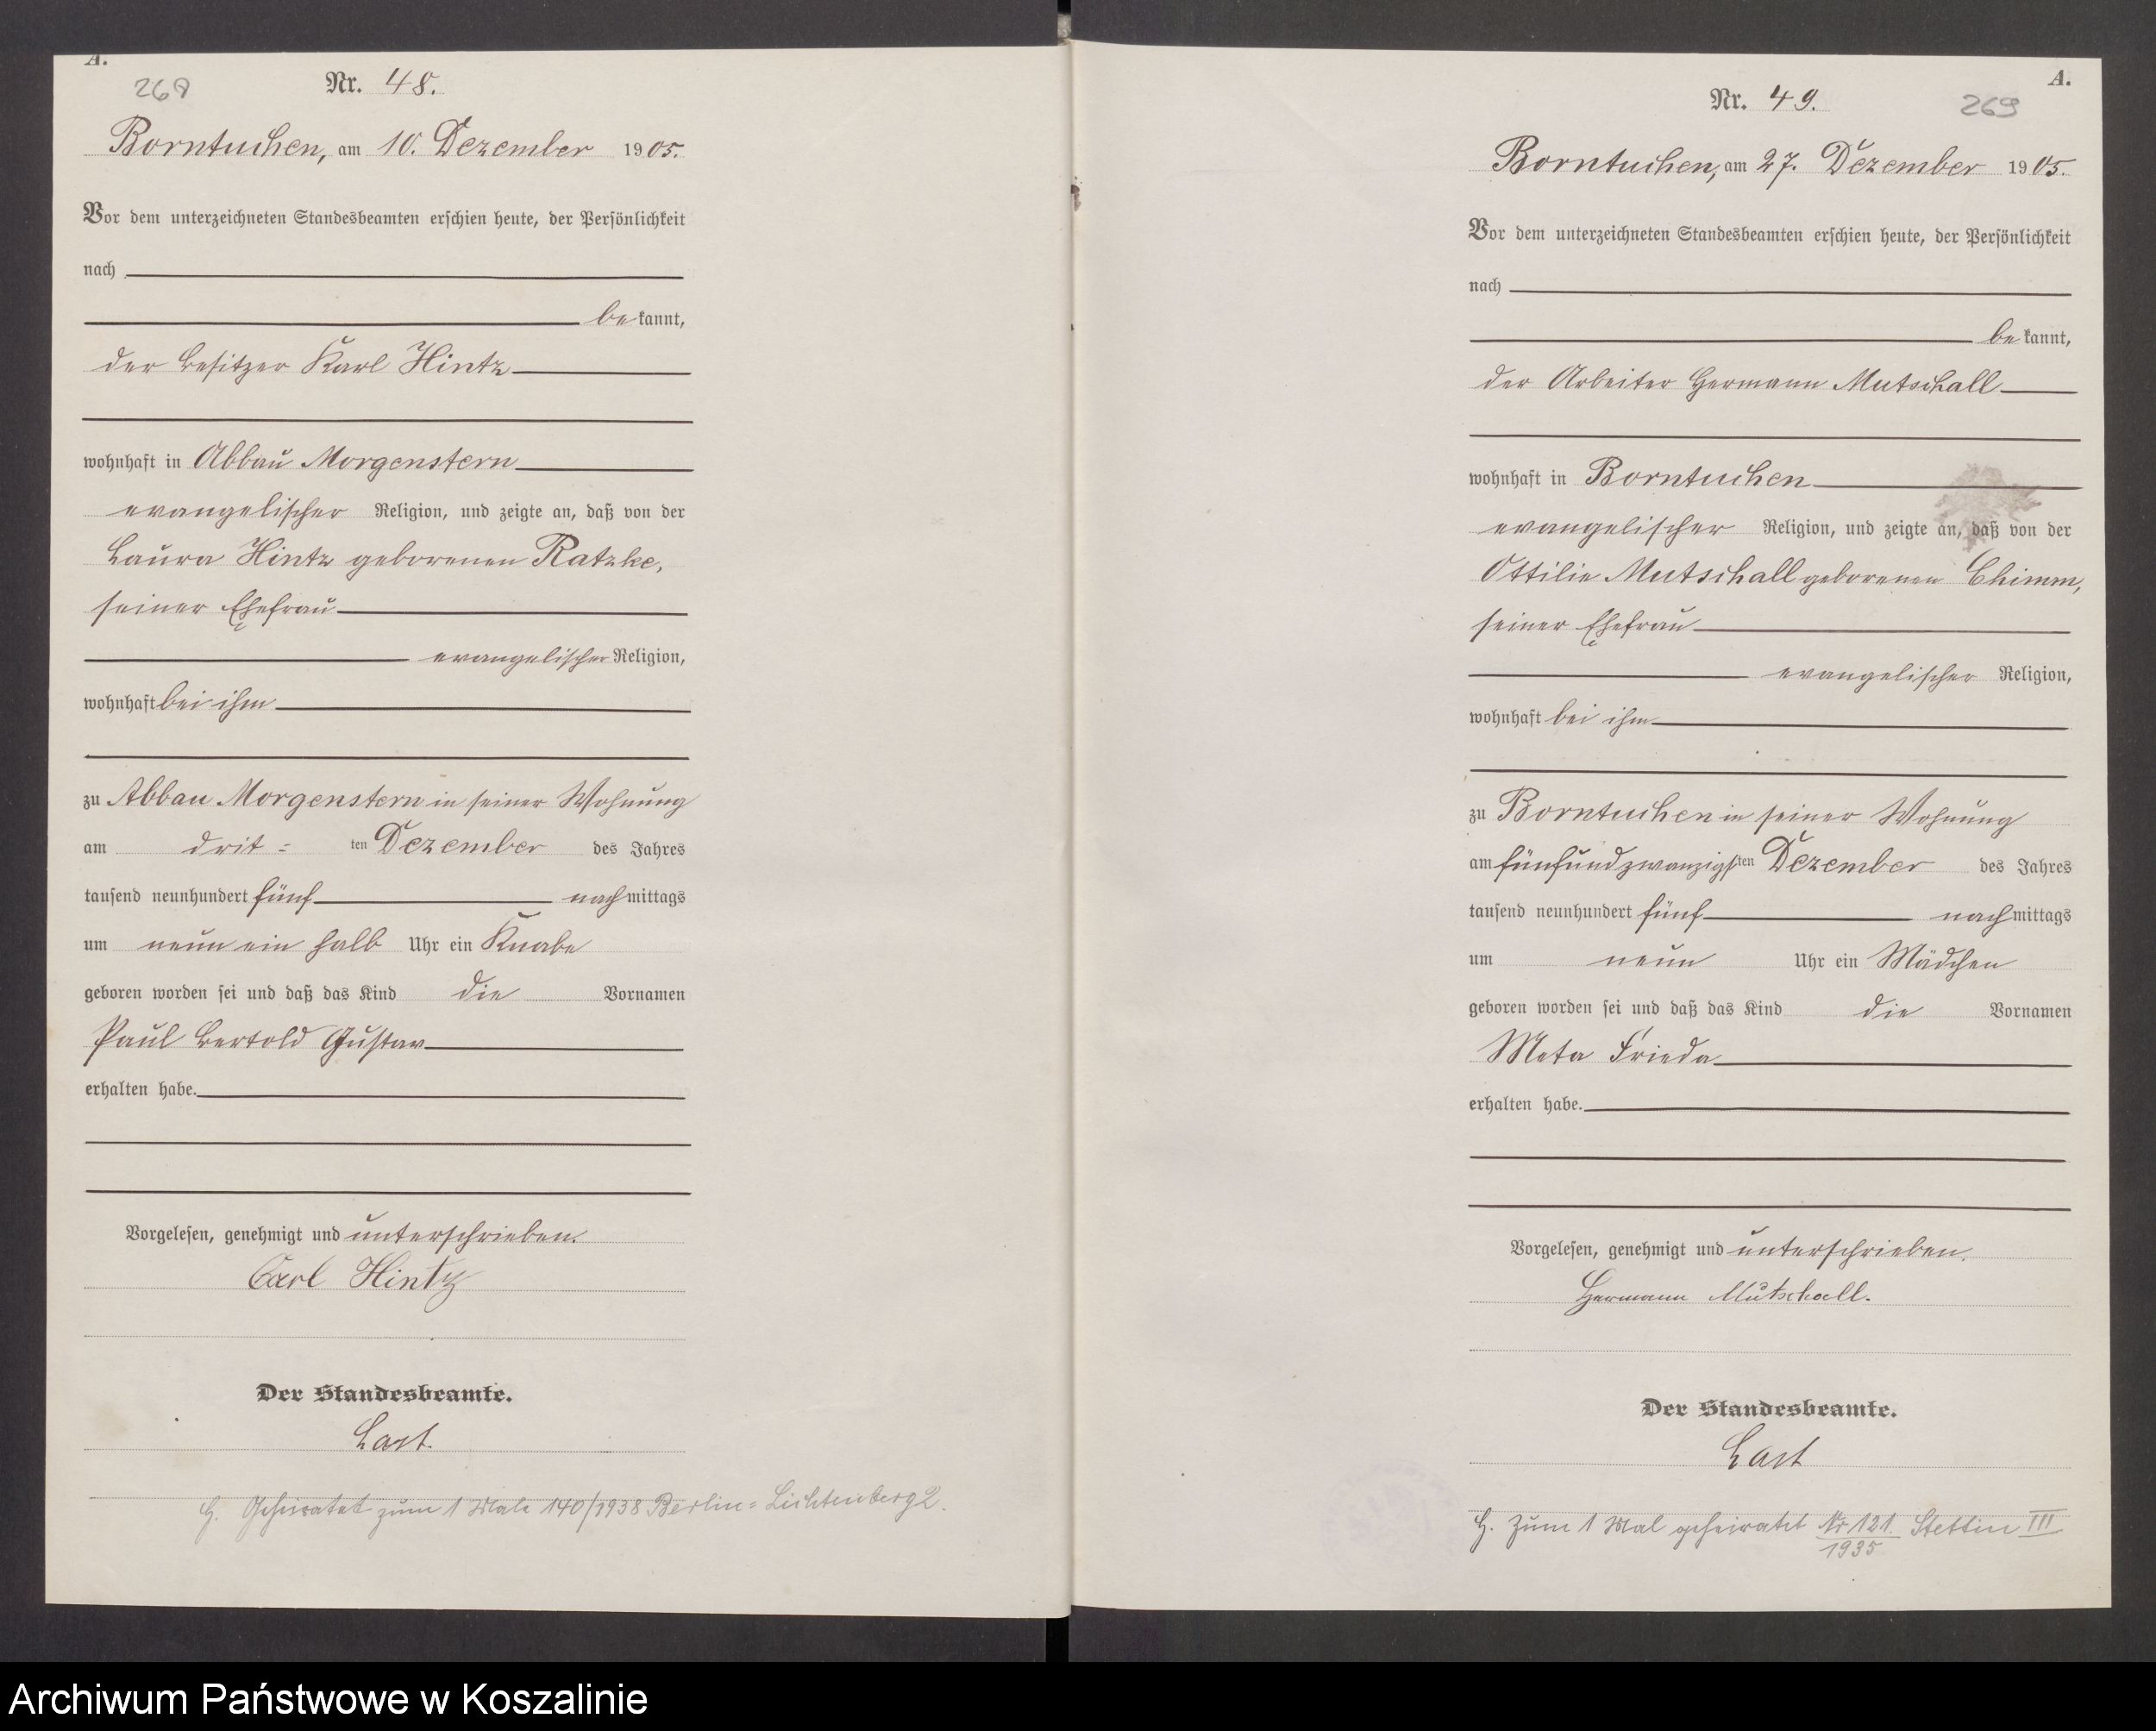 A.
268
Nr. 48.
Borntuchen, am 10. Dezember 1905.
Vor dem unterzeichneten Standesbeamten erschien heute, der Persönlichkeit
nach
bekannt,
der Besitzer Karl Hintz
wohnhaft in Abbau Morgenstern
evangelischer Religion, und zeigte an, daß von der
Laura Hintz geborenen Ratzke,
seiner Ehefrau
evangelischer Religion,
wohnhaft bei ihm
zu Abbau Morgenstern in seiner Wohnung
am drit=ten Dezember des Jahres
tausend neunhundert fünf nachmittags
um neun ein halb Uhr ein Knabe
geboren worden sei und daß das Kind die Vornamen
Paul Bertold Gustav
erhalten habe.
Vorgelesen, genehmigt und unterschrieben.
Carl Hintz
Der Standesbeamte.
Last.
H. Geheiratet zum 1 Male 140/1938 Berlin=Lichtenberg 2.
A.
Nr. 49.
269
Borntuchen, am 27. Dezember 1905.
Vor dem unterzeichneten Standesbeamten erschien heute, der Persönlichkeit
nach
bekannt,
der Arbeiter Hermann Mutschall
wohnhaft in Borntuchen
evangelischer Religion, und zeigte an, daß von der
Ottilie Mutschall geborenen Chimm,
seiner Ehefrau
evangelischer Religion,
wohnhaft bei ihm
zu Borntuchen in seiner Wohnung
am fünfundzwanzigsten Dezember des Jahres
tausend neunhundert fünf nachmittags
um neun Uhr ein Mädchen
geboren worden sei und daß das Kind die Vornamen
Meta Frieda
erhalten habe.
Vorgelesen, genehmigt und unterschrieben.
Hermann Mutschall.
Der Standesbeamte.
Last
H. Zum 1 Mal geheiratet Nr 121 Stettin III
1935
Archiwum Państwowe w Koszalinie